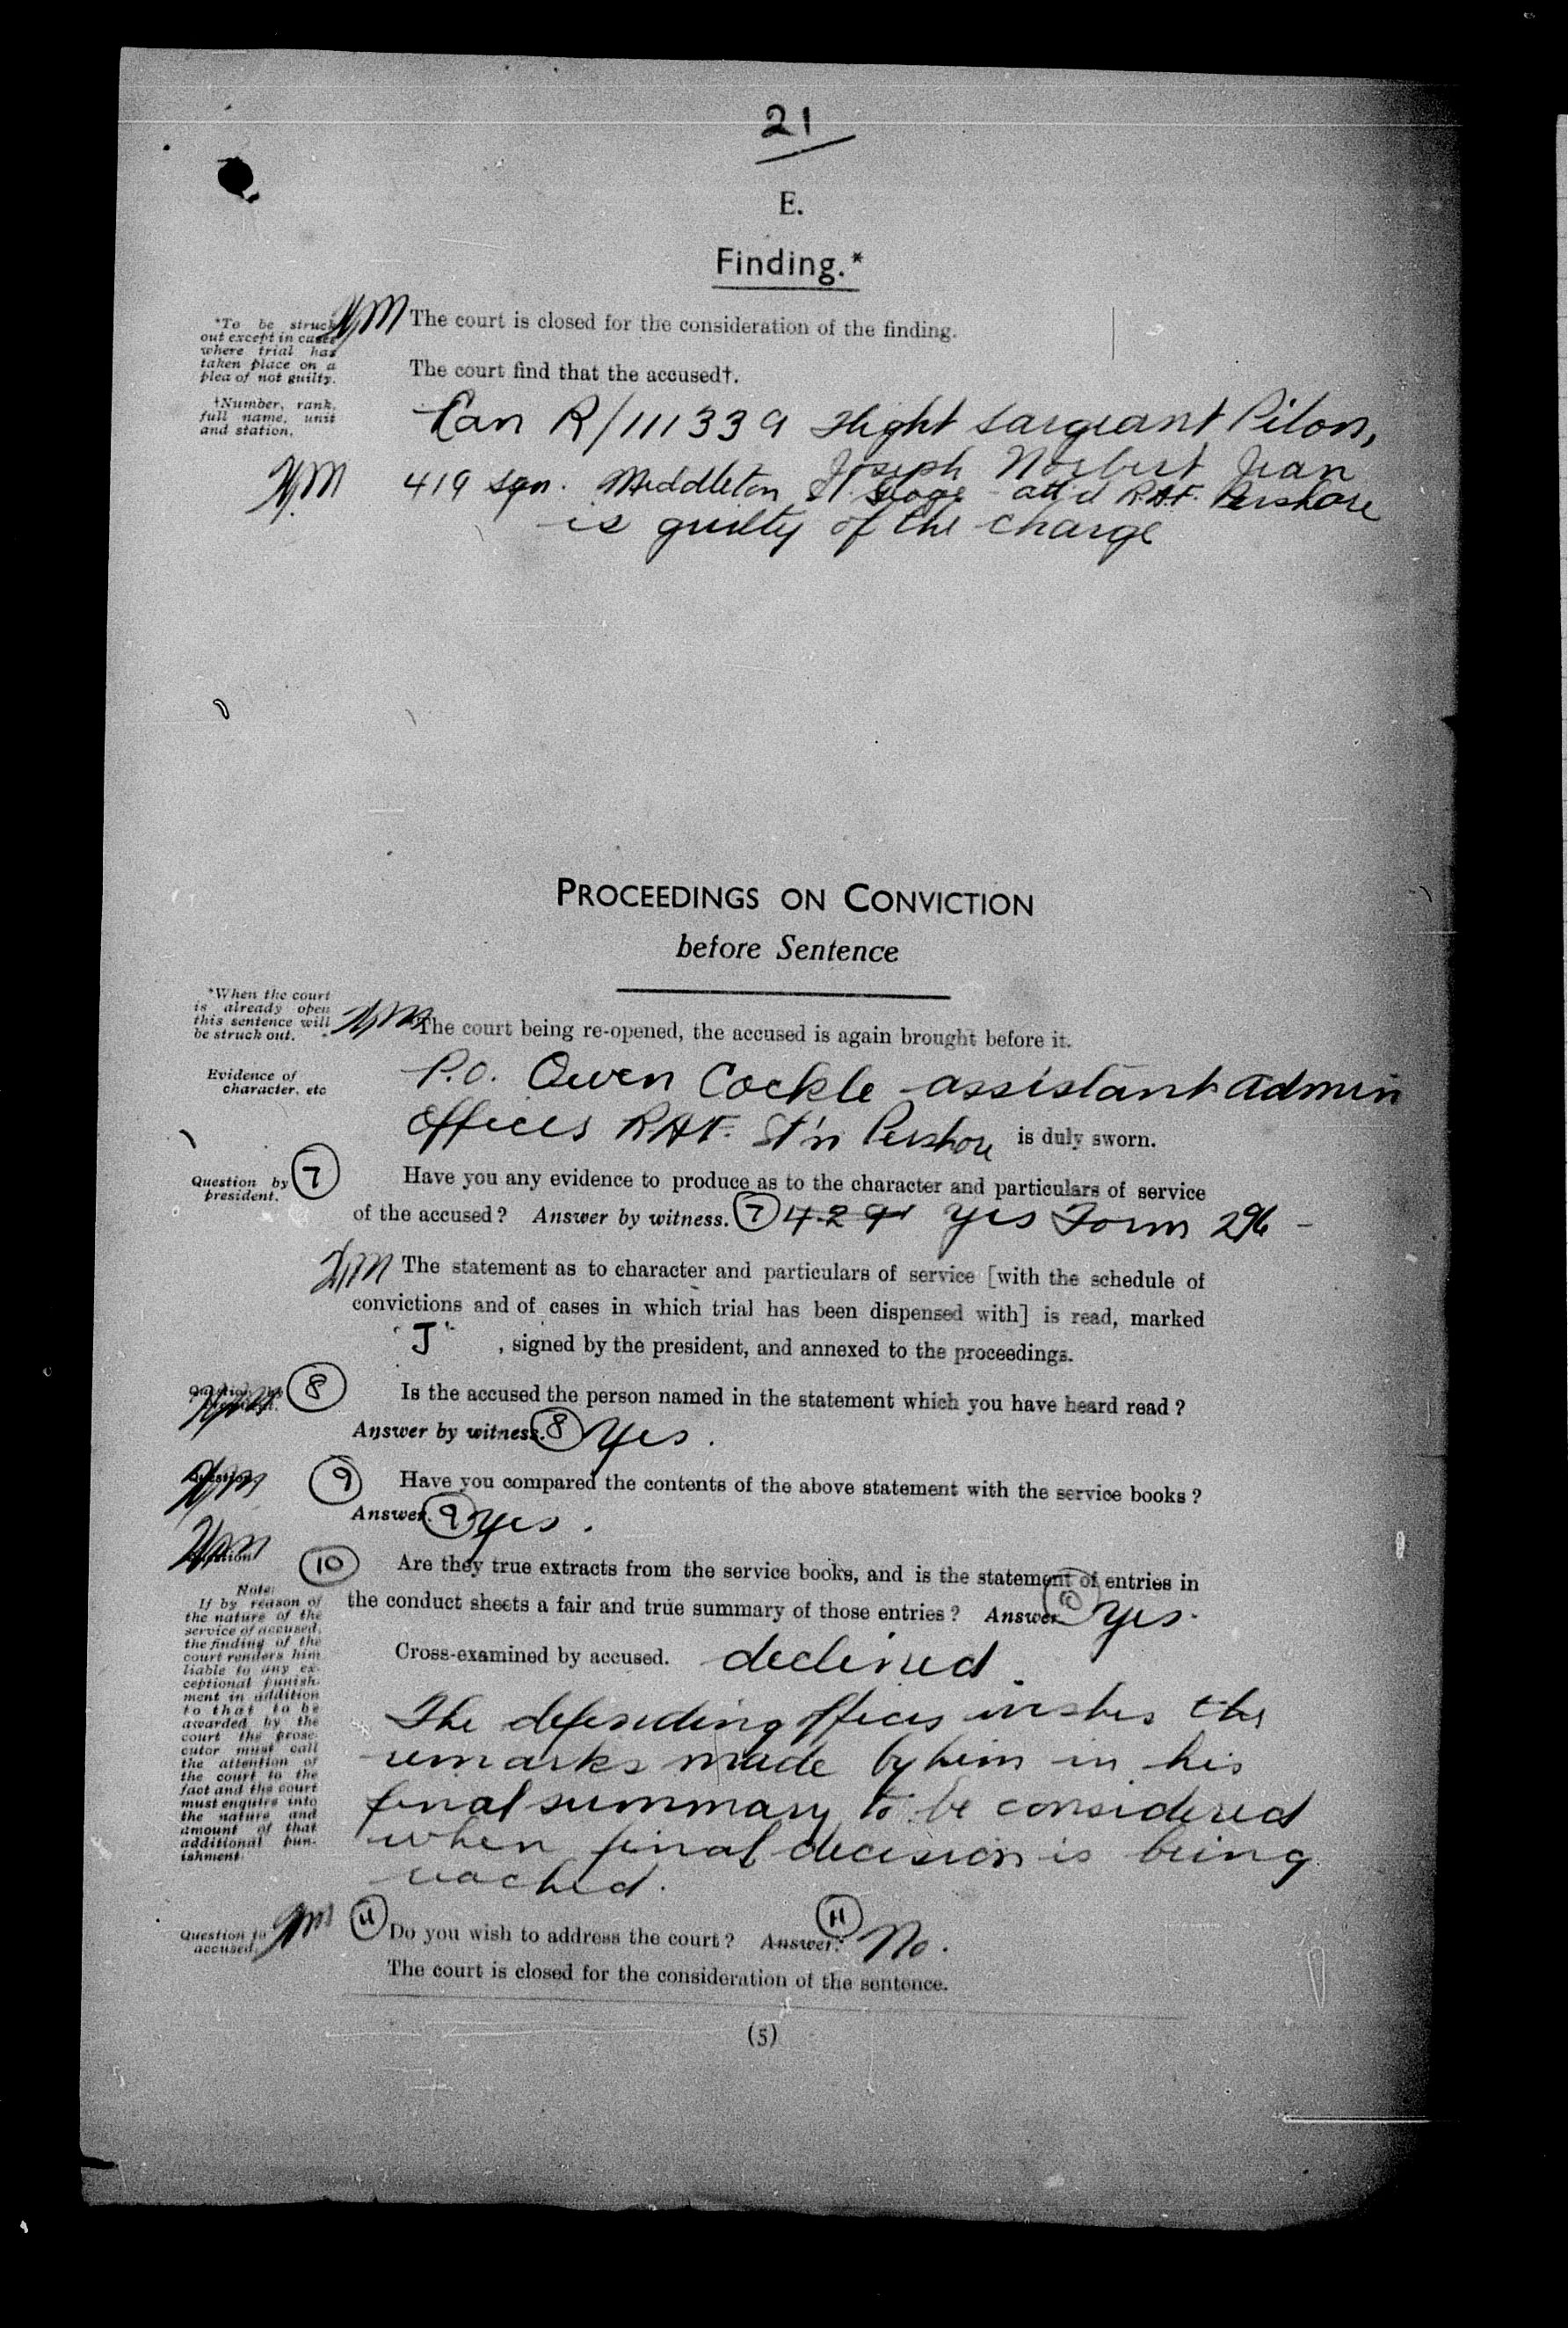 21
E.
Finding.*
*To be struck
out except in cases
where trial has
taken place on a
plea of not guilty.
The court is closed for the consideration of the finding.
The court find that the accused†.
†Number, rank,
full name, unit
and station.
Can R/111339 Flight Sargeant Pilon,
Joseph Norbert Jean
419 Sqn. Middleton St. George att'd R.A.F. Pershore
is guilty of the charge
PROCEEDINGS ON CONVICTION
before Sentence
*When the court
is already open
this sentence will
be struck out.
*The court being re-opened, the accused is again brought before it.
Evidence of
character, etc
P.O. Owen Cockle assistant admin
officer RAF. St'n Pershore is duly sworn.
Question by
president.
7 Have you any evidence to produce as to the character and particulars of service
of the accused? Answer by witness. 7 yes Form 296 -
The statement as to character and particulars of service [with the schedule of
convictions and of cases in which trial has been dispensed with] is read, marked
"J" , signed by the president, and annexed to the proceedings.
8 Is the accused the person named in the statement which you have heard read?
Answer by witness. 8 Yes.
Question 9 Have you compared the contents of the above statement with the service books?
Answer. 9 yes.
Question 10 Are they true extracts from the service books, and is the statement of entries in
the conduct sheets a fair and true summary of those entries? Answer 10 Yes.
Note:
If by reason of
the nature of the
service of accused,
the finding of the
court renders him
liable to any ex-
ceptional punish-
ment in addition
to that to be
awarded by the
court the prose-
cutor must call
the attention of
the court to the
fact and the court
must enquire into
the nature and
amount of that
additional pun-
ishment.
Cross-examined by accused. declined
The defending officer wishes the
remarks made by him in his
final summary to be considered
when final decision is being
reached.
Question to
accused.
11 Do you wish to address the court? Answer. 11 No.
The court is closed for the consideration of the sentence.
(5)